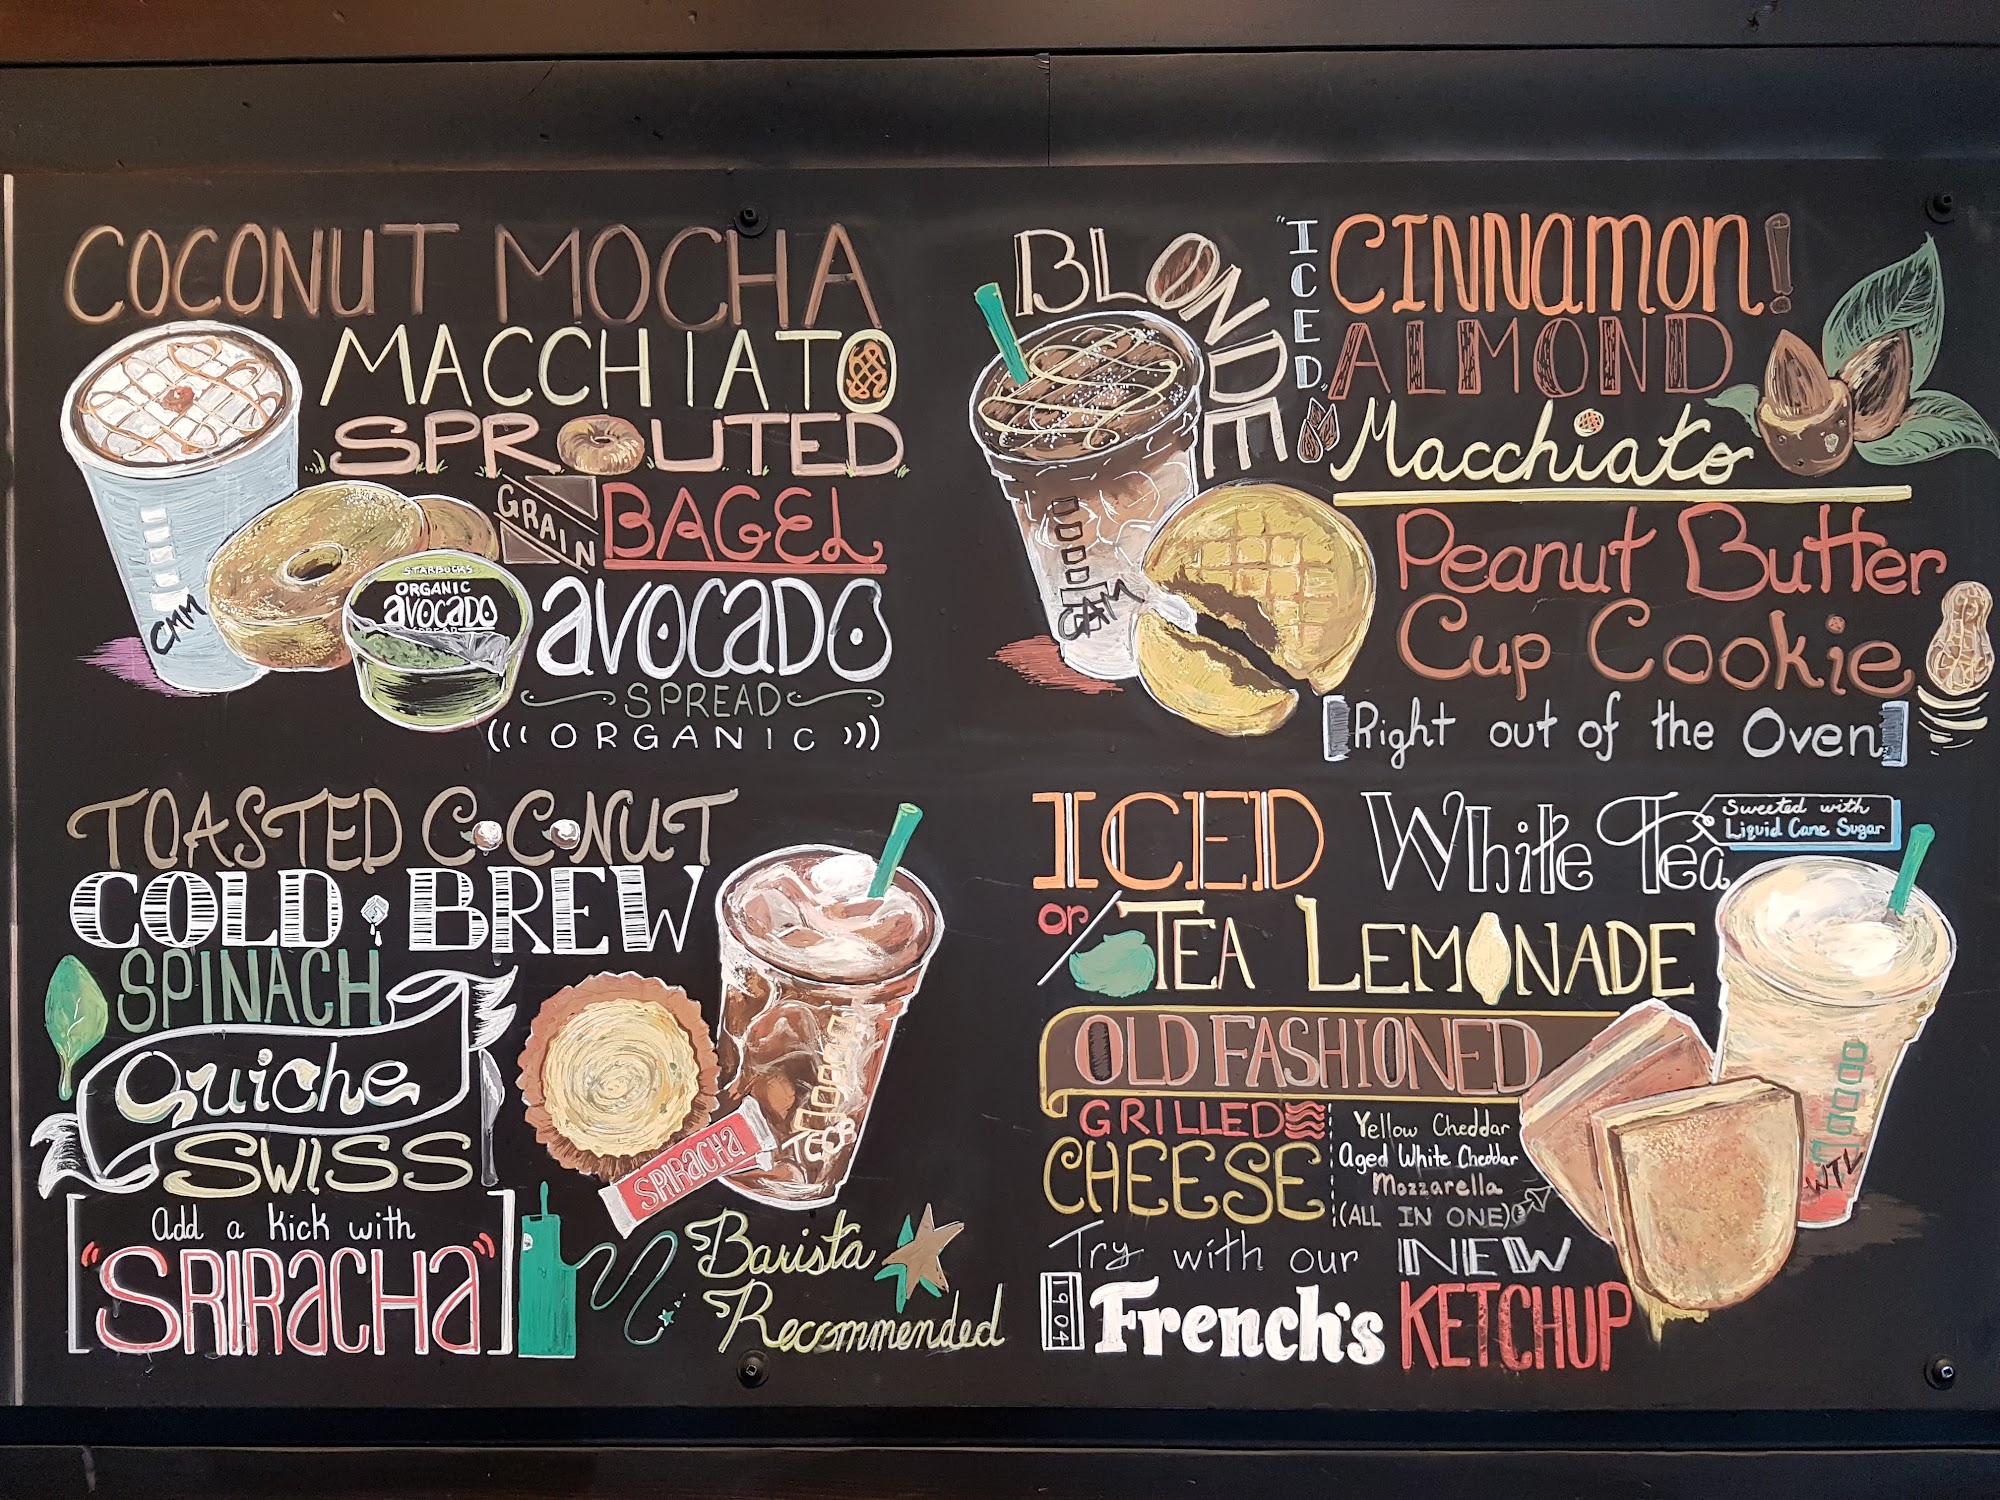 COCONUT MOCHA
MACCHIATO
SPROUTED
GRAIN BAGEL
AVOCADO
SPREAD
(((ORGANIC)))
STARBUCKS
ORGANIC
AVOCADO
CMM
BLONDE
"ICED"
CINNAMON!
ALMOND
Macchiato
Peanut Butter
Cup Cookie
[Right out of the Oven]
TOASTED COCONUT
COLD BREW
SPINACH
Quiche
SWISS
Add a kick with
"SRIRACHA"
SRIRACHA
TCCB
Barista
Recommended
ICED White Tea
Sweeted with
Liquid Cane Sugar
or / TEA LEMONADE
OLD FASHIONED
GRILLED
CHEESE
Yellow Cheddar
Aged White Cheddar
Mozzarella
(ALL IN ONE)
Try with our NEW
1904 French's KETCHUP
WTL